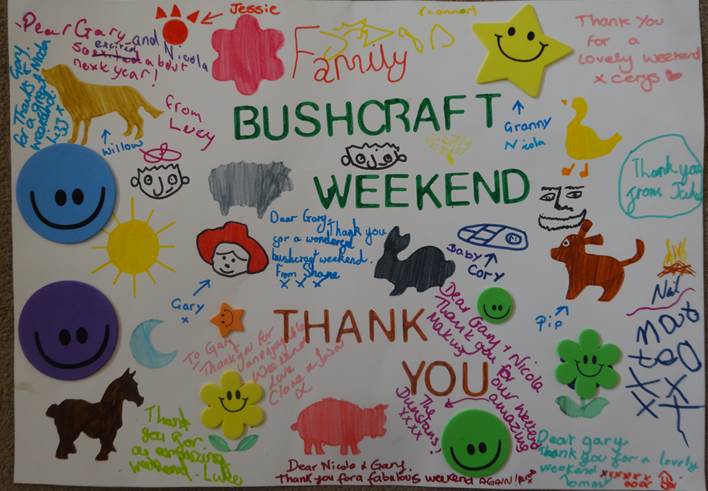 Dear Gary and Nicola
So excited about
next year!
from
Lucy
Jessie
Family
(connor)
Thank You
for a
lovely weekend
x cerys
Gary & Nicola
Thanks
for a great
weekend
Lizzi x
Willow
BUSHCRAFT
WEEKEND
Granny
Nicola
Thank you
from Jake
Dear Gary,
Thank you
for a wonderful
bushcraft weekend.
From Shane
x x x
Gary
x
Baby
Cory
Pip
Nat
THANK
YOU
To Gary
Thank you for
Weekend
Love
Clara
Dear Gary + Nicola
Thank you for
Making our weekend
amazing
The
Dunstans!
xxxx
Thank
you for
an amazing
weekend. Luke
Dear Nicola & Gary.
Thank you for a fabulous weekend AGAIN!
Dear gary
Thank you for a lovely
weekend